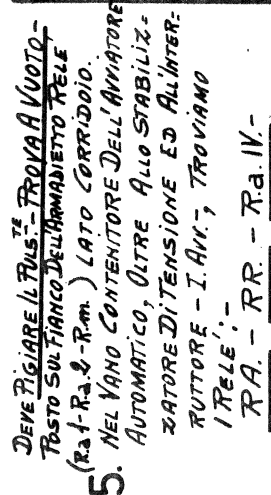 DEVE PIGIARE IL PULS.TE - PROVA A VUOTO -
POSTO SUL FIANCO DELL'ARMADIETTO RELE
(R.a1-R.a.2-R.m.) LATO CORRIDOIO.
5. NEL VANO CONTENITORE DELL'AVVIATORE
AUTOMATICO, OLTRE ALLO STABILIZ=
ZATORE DI TENSIONE ED ALL'INTER=
RUTTORE - I. AVV. -, TROVIAMO
I RELE' :-
RA. - RR. - R.a. IV. -